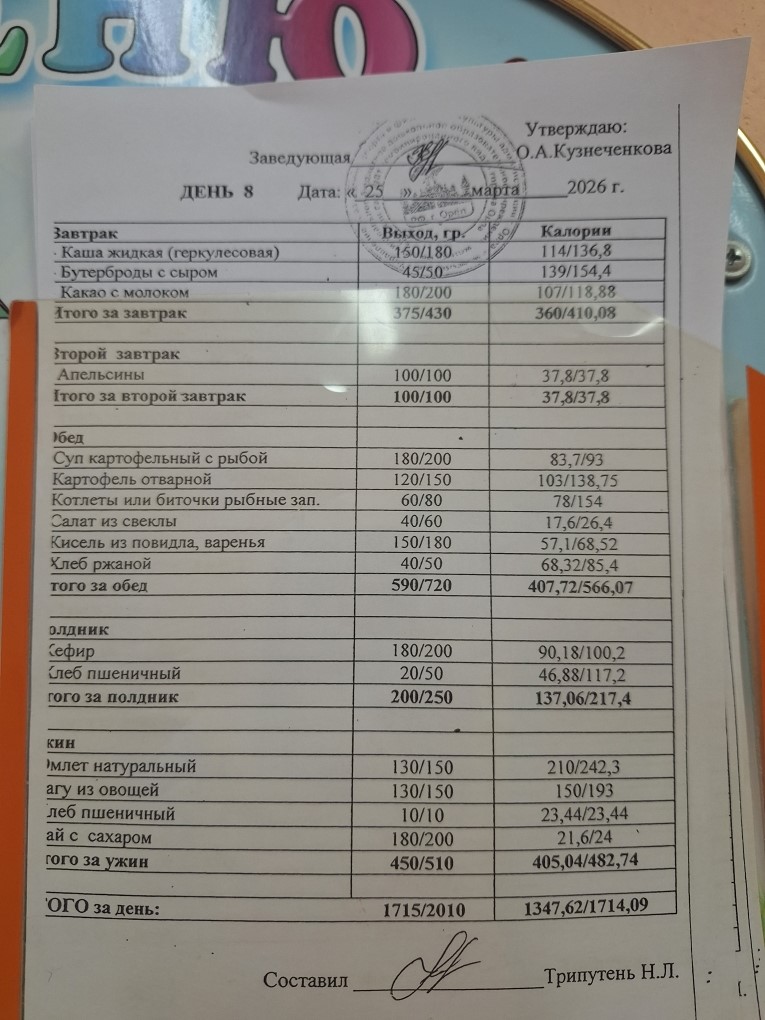 Утверждаю:
Заведующая О.А.Кузнеченкова
ДЕНЬ 8 Дата: « 25 » марта 2026 г.
Завтрак Выход, гр. Калории
Каша жидкая (геркулесовая) 150/180 114/136,8
Бутерброды с сыром 45/50 139/154,4
Какао с молоком 180/200 107/118,88
Итого за завтрак 375/430 360/410,08
Второй завтрак
Апельсины 100/100 37,8/37,8
Итого за второй завтрак 100/100 37,8/37,8
Обед
Суп картофельный с рыбой 180/200 83,7/93
Картофель отварной 120/150 103/138,75
Котлеты или биточки рыбные зап. 60/80 78/154
Салат из свеклы 40/60 17,6/26,4
Кисель из повидла, варенья 150/180 57,1/68,52
Хлеб ржаной 40/50 68,32/85,4
того за обед 590/720 407,72/566,07
олдник
Кефир 180/200 90,18/100,2
Хлеб пшеничный 20/50 46,88/117,2
того за полдник 200/250 137,06/217,4
жин
Омлет натуральный 130/150 210/242,3
агу из овощей 130/150 150/193
леб пшеничный 10/10 23,44/23,44
ай с сахаром 180/200 21,6/24
того за ужин 450/510 405,04/482,74
ТОГО за день: 1715/2010 1347,62/1714,09
Составил Трипутень Н.Л.